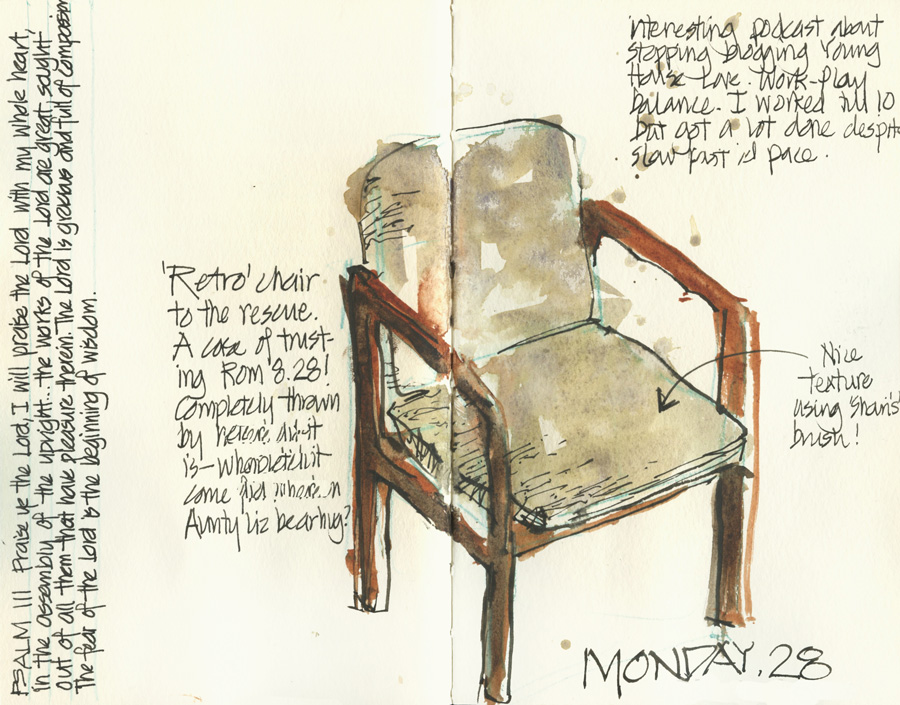 PSALM 111 Praise ye the Lord, I will praise the Lord with my whole heart,
in the assembly of the upright... the works of the Lord are great, sought
out of all them that have pleasure therein. The Lord is gracious and full of compassion
The fear of the Lord is the beginning of wisdom.
interesting podcast about
stopping blogging Young
House Love. Work-Play
balance. I worked till 10
but got a lot done despite
slow pace.
'Retro' chair
to the rescue.
A case of trust-
ing Rom 8.28!
Completely thrown
by
is-
come
Aunty Liz bearhug?
Nice
texture
using 'Shari's'
brush!
MONDAY, 28